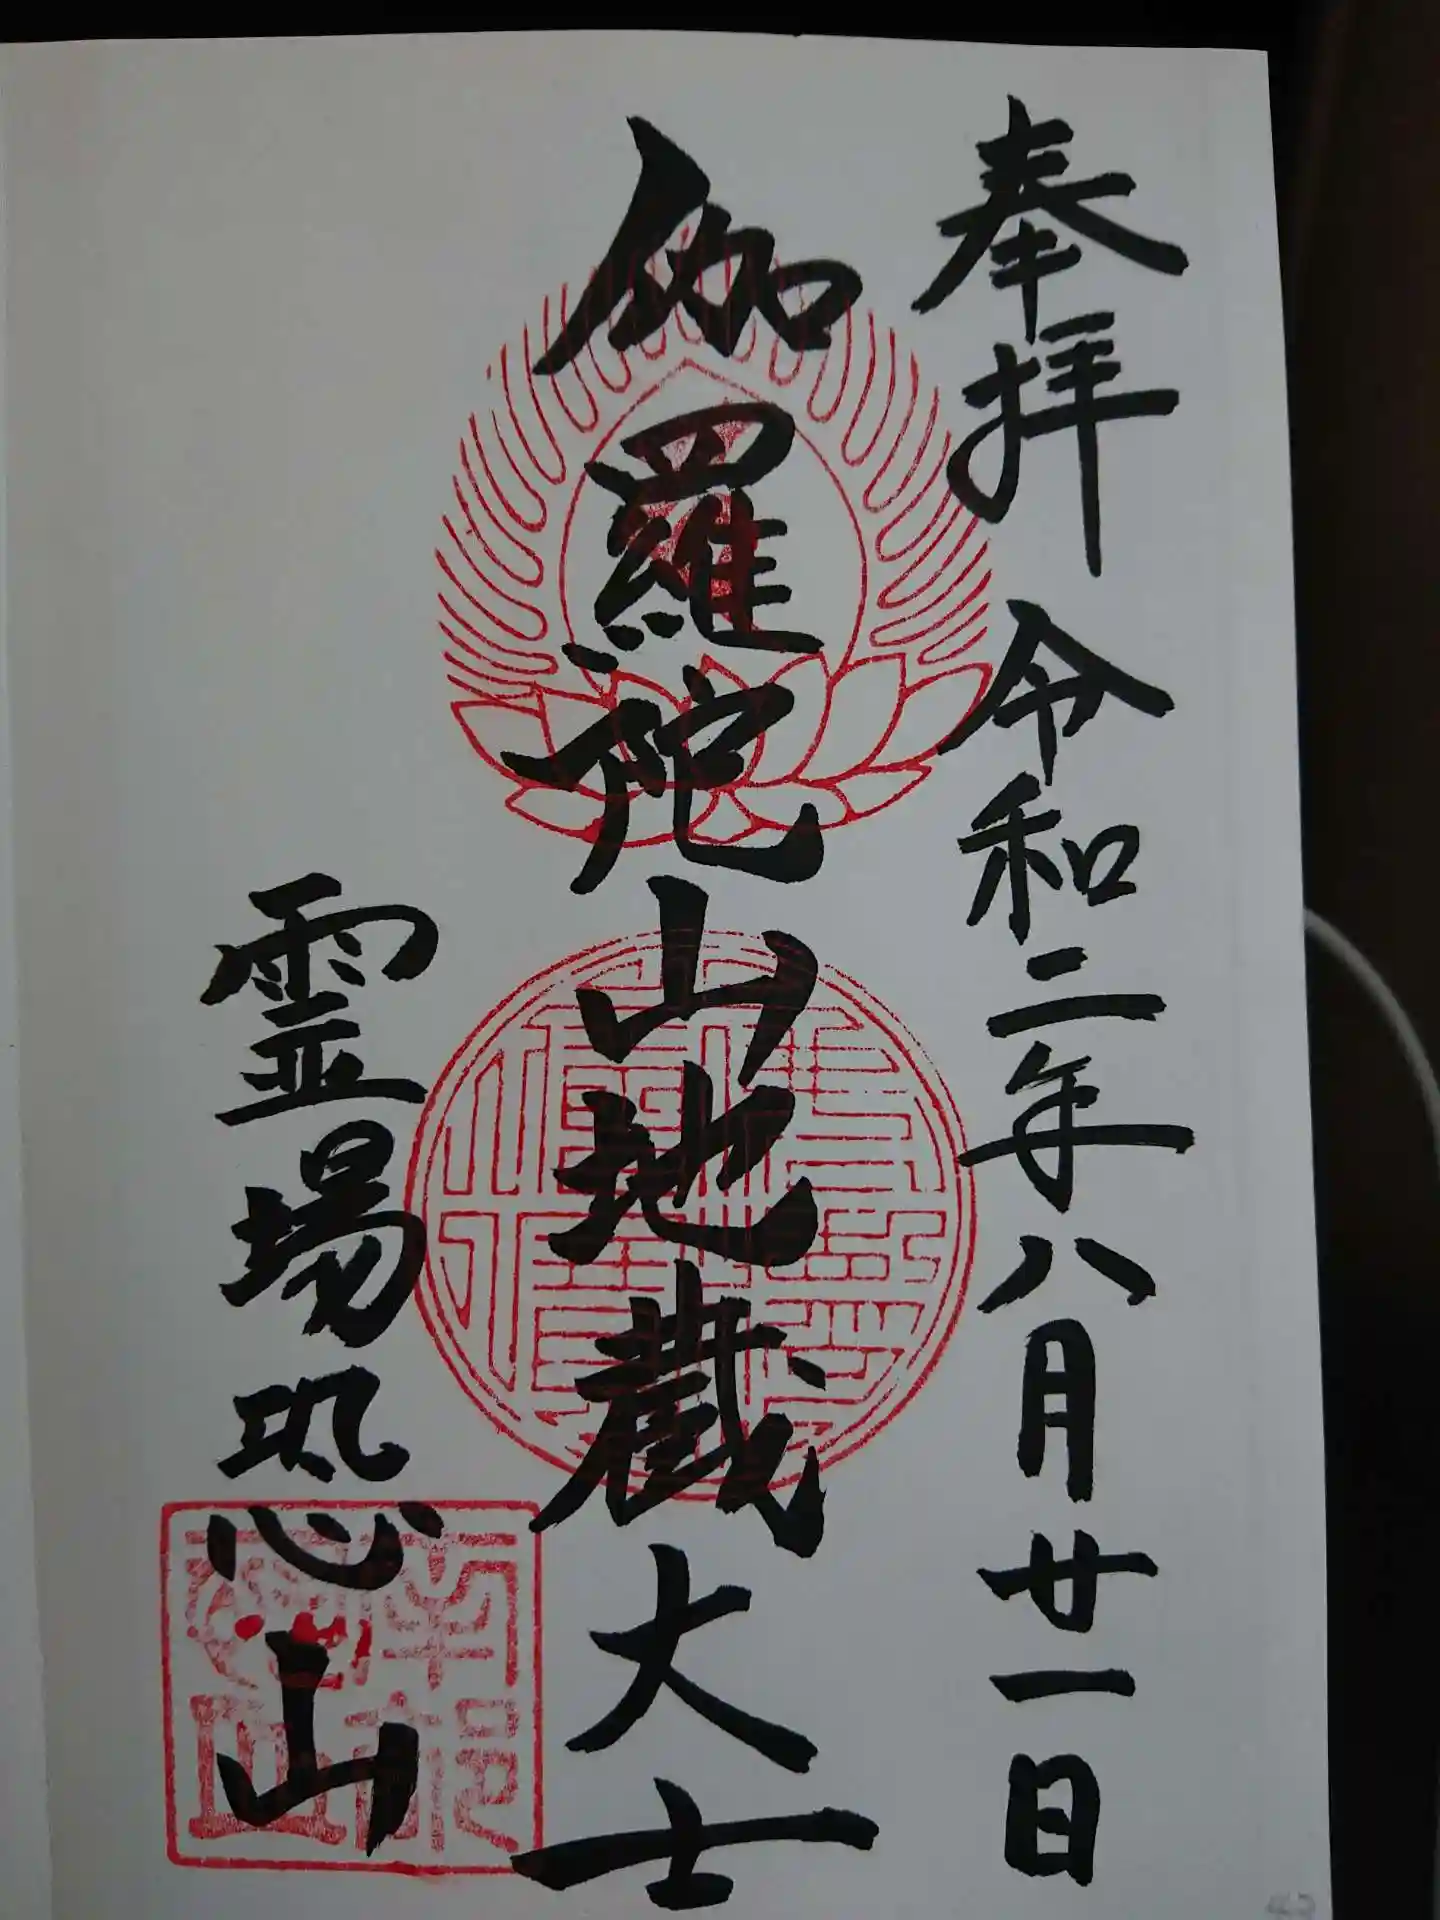 奉拝 令和二年八月廿一日
伽羅陀山地蔵大士
霊場恐山